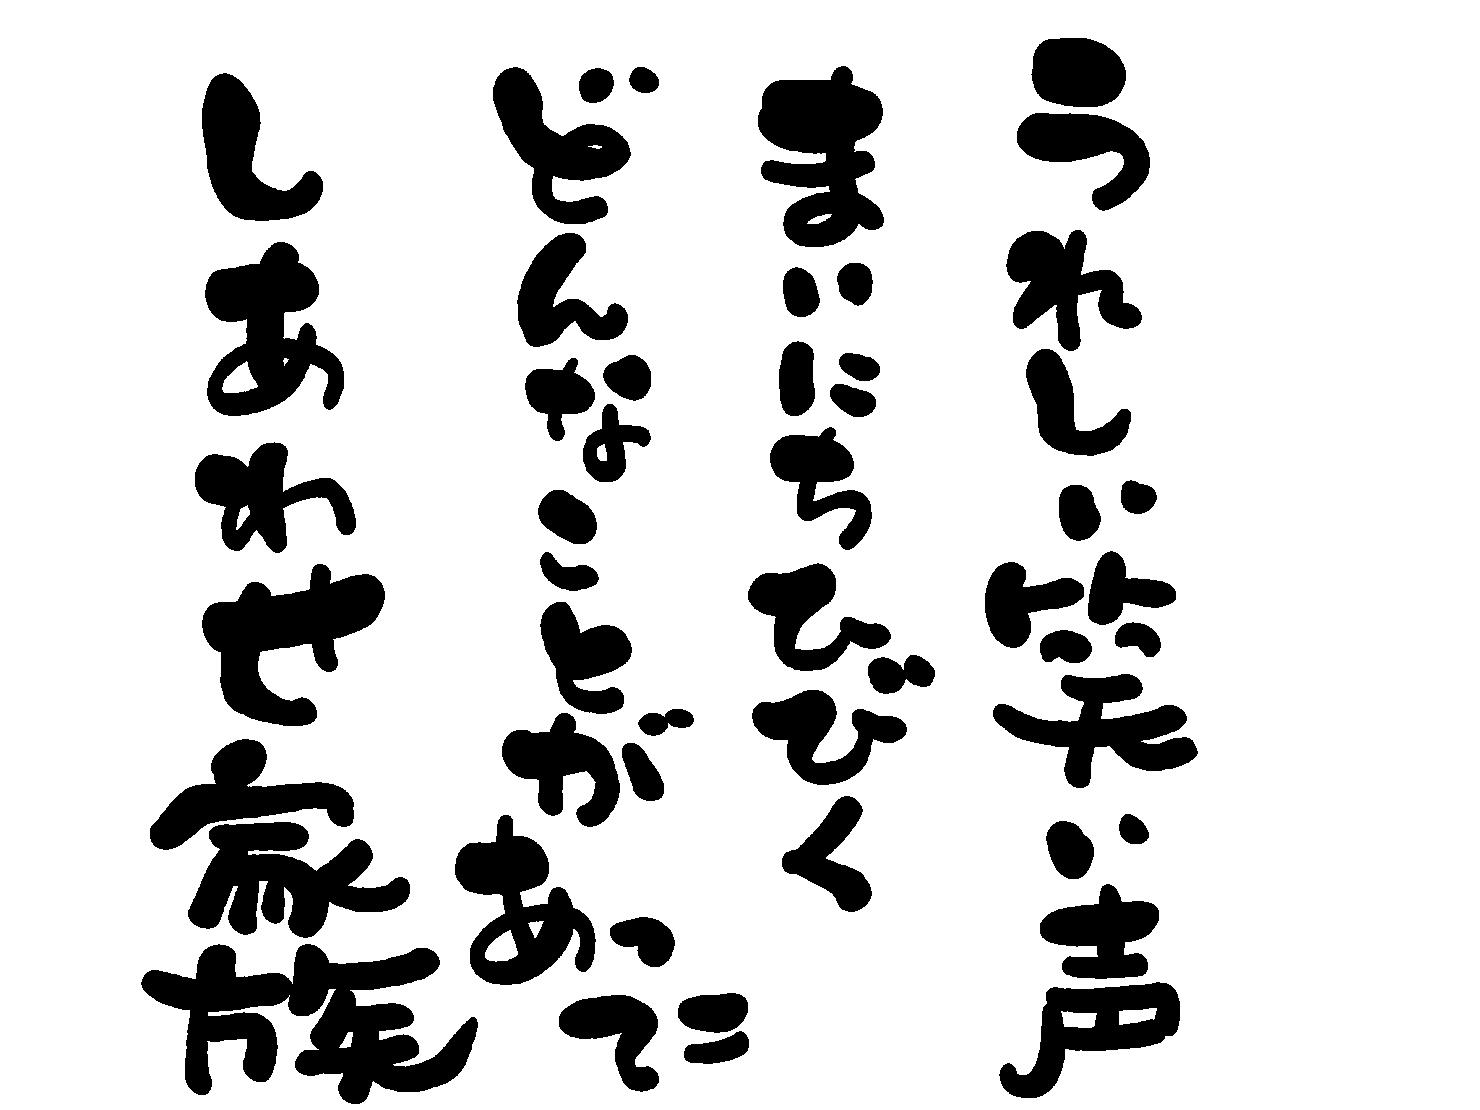 うれしい笑い声
まいにちひびく
どんなことがあってこ
しあわせ家族